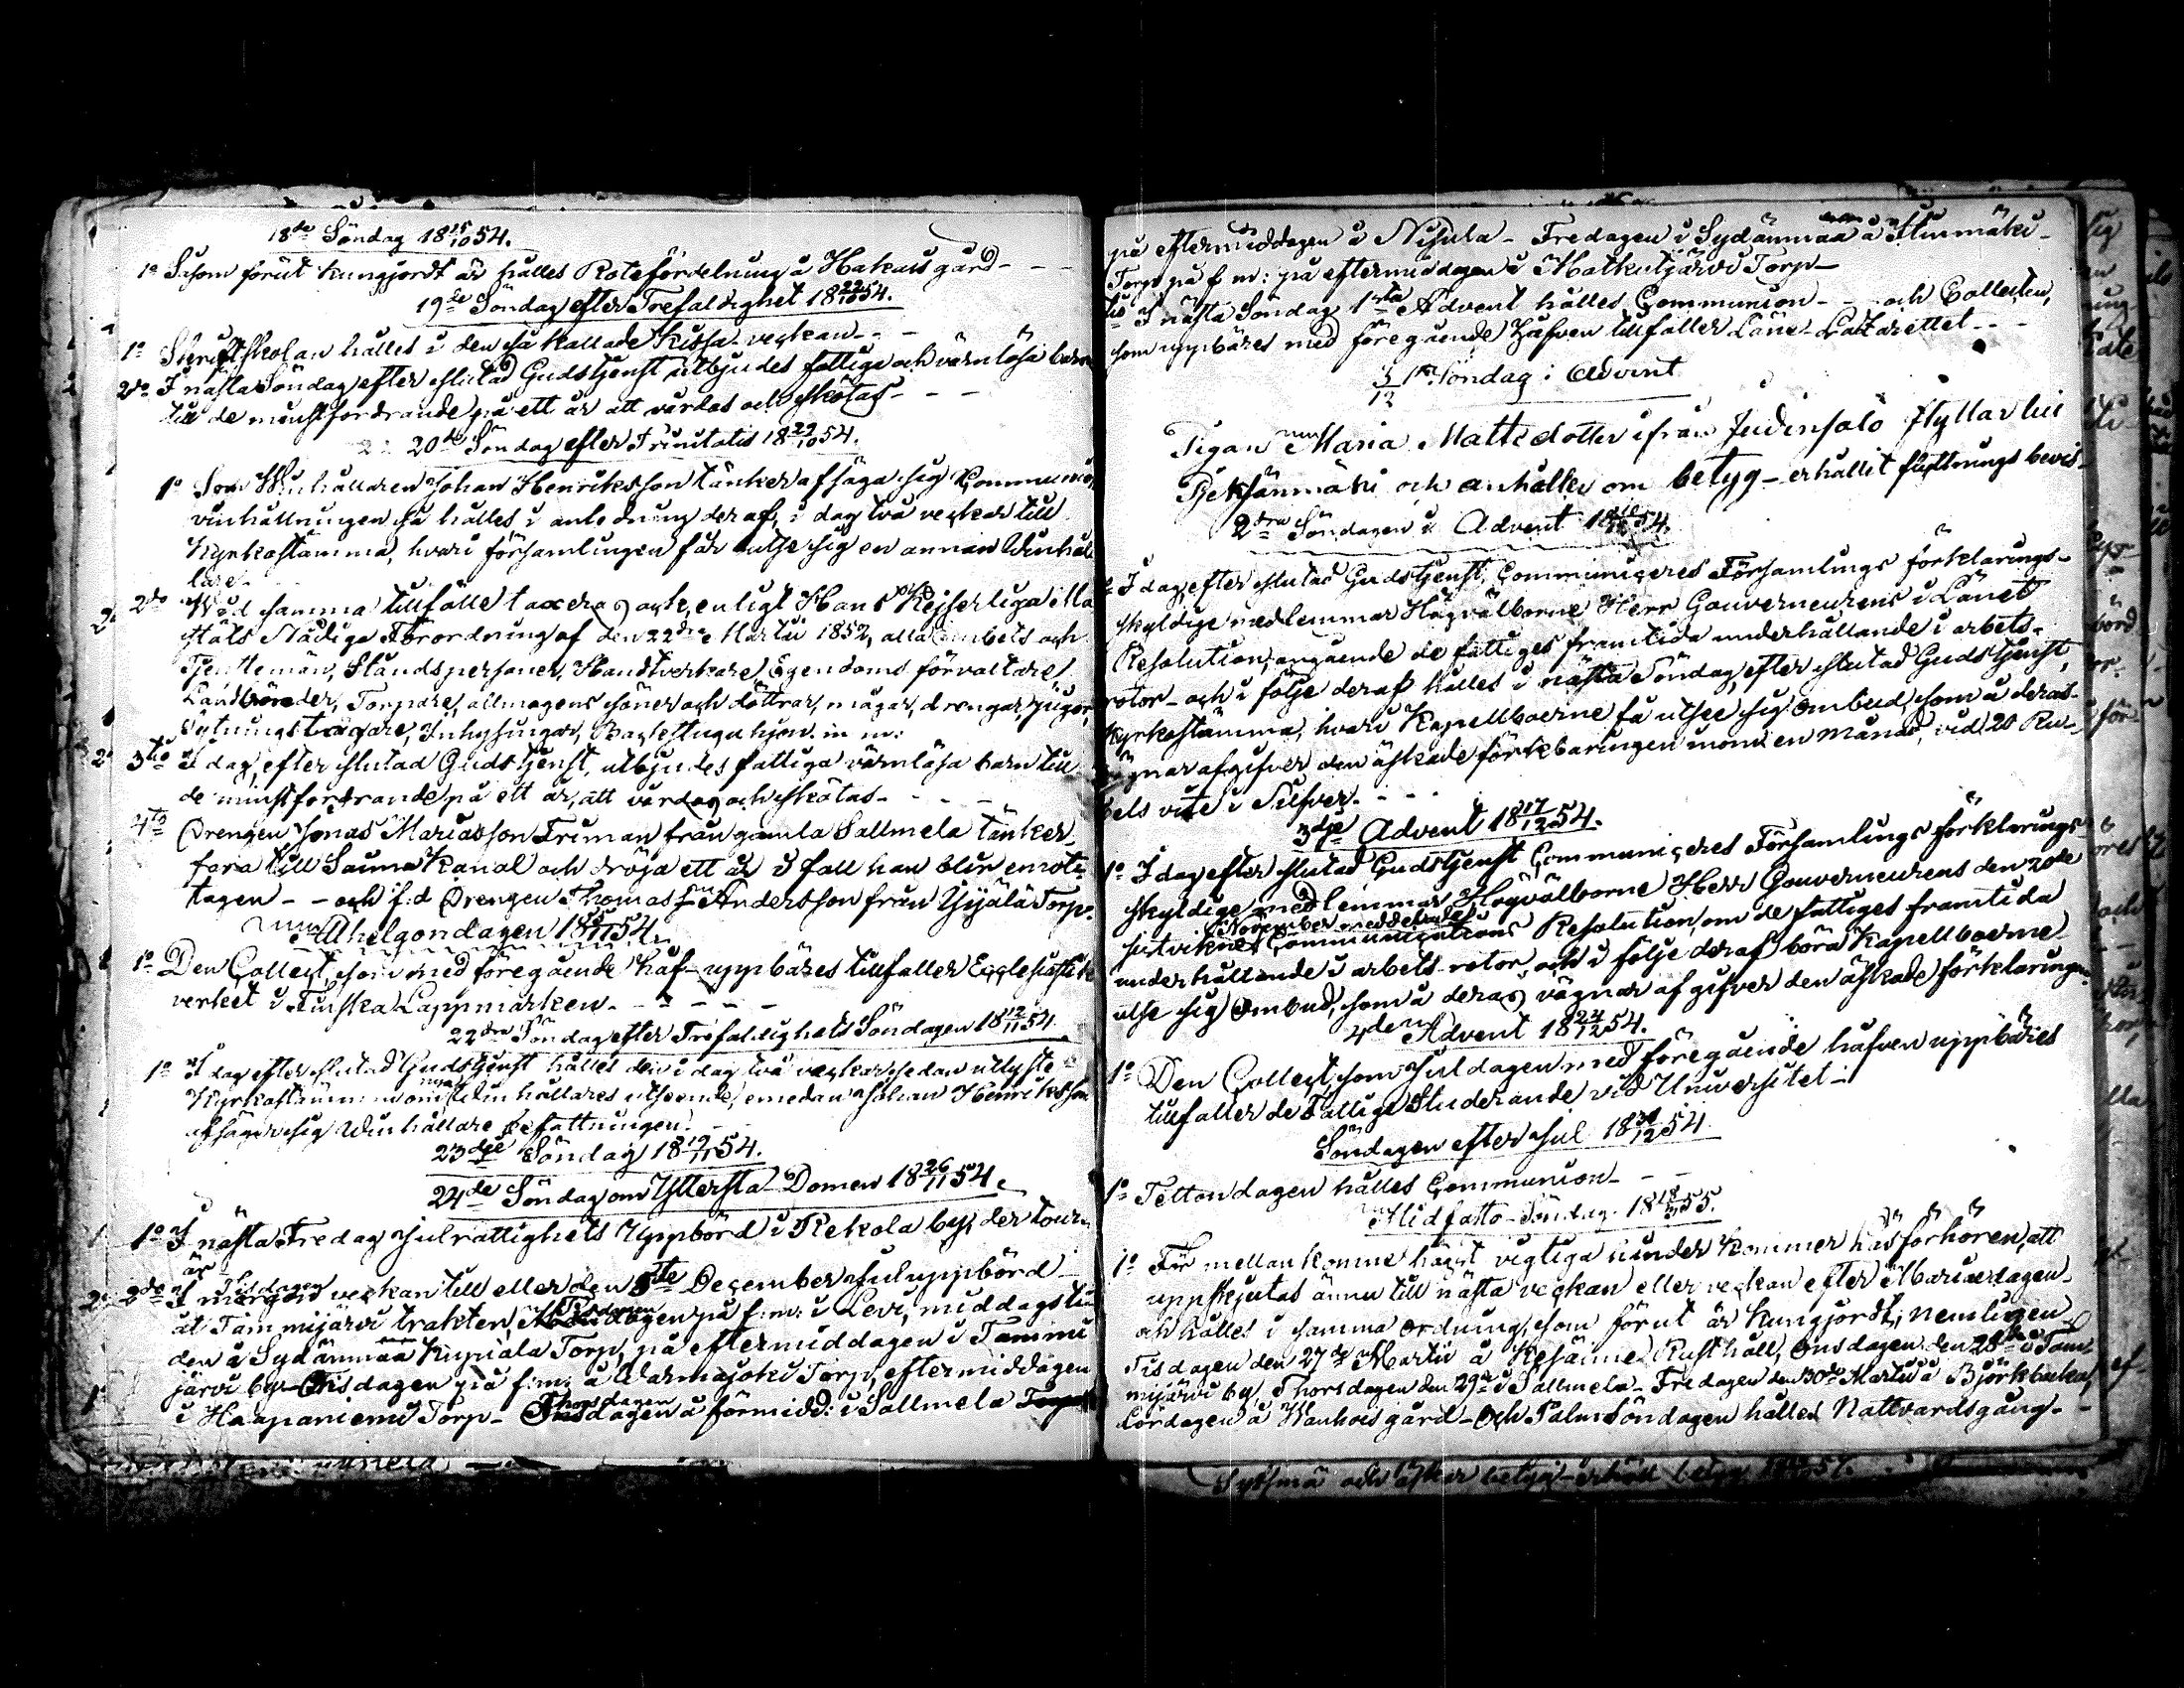 18de Söndag 18 15/10 54.
1o Såsom förut kungjordt är hålles Rotefördelning å Hakais gård - - -
19de Söndag efter Trefaldighet 18 22/10 54.
1o Skriftskolan hålles i den så kallade Kissa-veckan - -
2do I nästa Söndag efter slutad Gudstjenst utbjudes fattiga och värnlösa barn
till de minstfordrande på ett år att vårdas och skötas - - -
20de Söndag efter Trinitatis 18 29/10 54.
1o Som Winhållaren Johan Henriksson tänker afsäga sig Communion
vinhållningen så hålles i anledning deraf, i dag två veckor till
Kyrkostämma, hvari församlingen får utse sig en annan Winhål
lare.
2do Wid samma tillfälle taxeras ock, enligt Hans Kejserliga Ma
jestäts Nådiga Förordning af den 22dra Martii 1852, alla embets och
Tjenstemän, Ståndspersoner, Handtverkare, Egendoms förvaltare,
Landbönder, Torpare, allmogens söner och döttrar, mågar, drengar, pigor,
Sytningstagare, Inhysingar, Backstugu hjon m m:
3tio I dag, efter slutad Gudstjenst, utbjudes fattiga värnlösa barn till
de minstfordrande på ett år, att vårdas och skötas - - - -
4to Drengen Jonas Mariasson Friman från gamla Sallmela tänker
fara till Saima Kanal och dröja ett år i fall han blir emot-
tagen - - och f:d Drengen Thomas Andersson från Yijälä Torp.
Alhelgondagen 18 5/11 54.
1o Den Collect, som med föregående håf uppbäres tillfaller Ecclesiastik
verket i Finska Lappmarken - - - - -
22dra Söndag efter Trefaldighets Söndagen 18 12/11 54.
1o I dag efter slutad Gudstjenst hålles den i dag två veckor sedan utlyste
Kyrkostämman om Winhållares utseende, emedan Johan Henriksson
afsäger sig Winhållare befattningen.
23dje Söndag 18 19/11 54.
24de Söndag om Yttersta Domen 18 26/11 54.
1o I nästa Fredag Julrättighets Uppbörd i Rekola by, der tour
är
2do I Tisdagen veckan till eller den 5te December Juluppbörd
åt Tammijärvi trakten, Tisdagen på f:m: i Levi, middagstiden
å Sydänmaa Kupiala Torp, på eftermiddagen i Tammi
järvi by - Onsdagen på f:m: å Warmajoki Torp, eftermiddagen
i Haapaniemi Torp - Thorsdagen å förmidd: i Sallmela
på eftermiddagen å Nisula - Fredagen i Sydänmaa å
Torp på f m: på eftermiddagen i Matkutjärvi Torp -
3tio I nästa Söndag 1sta Advent hålles Communion - - och Collecten,
som uppbäres med föregående håfven tillfaller Läns-Lazarettet - - -
3/12 1sta Söndag i Advent
Pigan Maria Mattsdotter ifrån Judinsalo flyttar till
Pjeksänmäki och anhåller om betyg - erhållit flyttnings bevis -
2dra Söndagen i Advent 18 10/12 54.
I dag, efter slutad Gudstjenst, Communiceres Församlings förklarings-
skyldige medlemmar Högvälborne Herr Gouverneurens i Länet
Resolution, angående de fattiges framtida underhållande i arbets-
rotor - och i följe deraf hålles i nästa Söndag, efter slutad Gudstjenst,
Kyrkostämma, hvari Kapellboerne få utse sig ombud, som å deras
vägnar afgifver den äskade förklaringen inom en månad, vid 20 Ru-
bels vite i Silfver. - - -
3dje Advent 18 17/12 54.
1o I dag efter slutad Gudstjenst Communiceres Församlings förklarings
skyldige medlemmar Högvälborne Herr Gouverneurens den 20de
sistvikne November meddelade Communications Resolution, om de fattiges framtida
underhållande i arbets-rotor, och i följe deraf böra Kapellboerne
utse sig ombud, som å deras vägnar afgifver den äskade förklaringen
4de Advent 18 24/12 54.
1o Den Collect, som Juldagen med föregående håfven uppbäres
tillfaller de Fattige Studerande vid Universitet -
Söndagen efter Jul 18 31/12 54
1o Tettondagen hålles Communion - -
Midfasto-Söndag 18 18/3 55.
1o För mellankomne högst vigtiga hinder kommer husförhören, att
uppskjutas ännu till nästa veckan eller veckan efter Mariaedagen
och hålles i samma ordning, som förut är kungjordt, nemligen
Tisdagen den 27de Martii å Resänne Rusthåll, Onsdagen den 28de i Tam
mijärvi by, Thorsdagen den 29de i Sallmela - Fredagen den 30de Martii å Björkbacka,
Lördagen å Wanhois gård - Och PalmSöndagen hålles Nattvardsgång -
Sysmä och äskar betyg - erhöll betyg